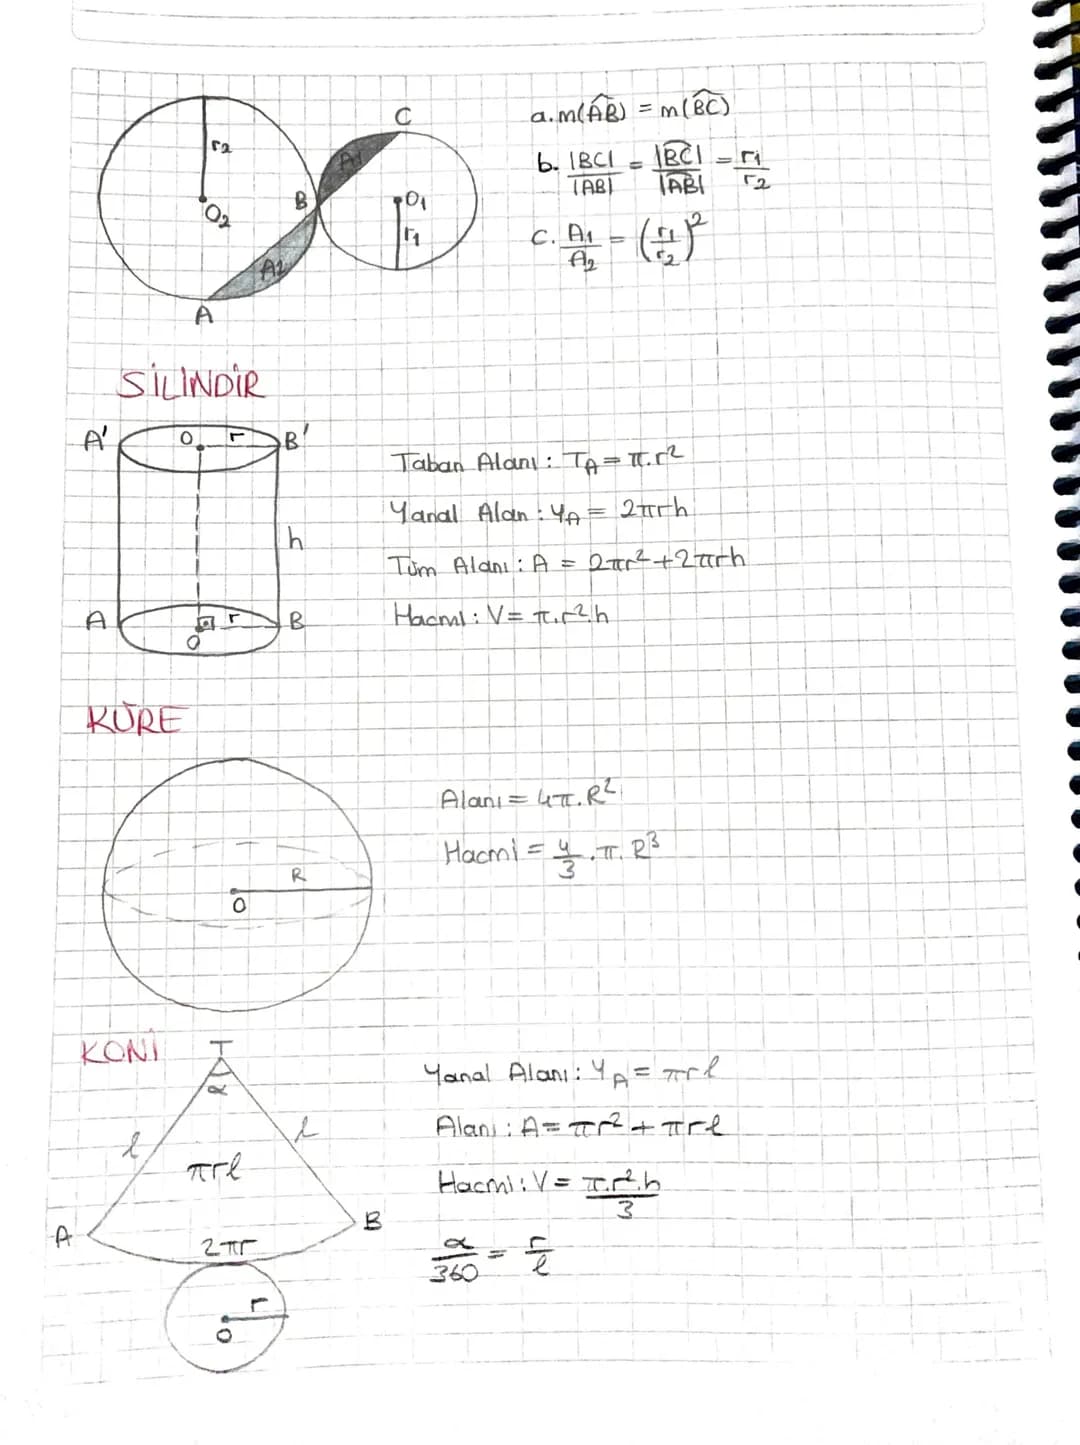 r2
O2
A
A2
B
A1
C
O1
r1
a. m(AB) = m(BC)
b. |BC|/|AB| = |BC|/|AB| = r1/r2
c. A1/A2 = (r1/r2)²
SİLİNDİR
A' O r B'
h
A r B
O
Taban Alanı : TA = π.r²
Yanal Alan : YA = 2πrh
Tüm Alanı : A = 2πr² + 2πrh
Hacmi : V = π.r².h
KÜRE
R
O
Alanı = 4π.R²
Hacmi = 4/3 . π. R³
KONİ
T
α
l l
πrl
A B
2πr
r
O
Yanal Alanı : YA = πrl
Alanı : A = πr² + πrl
Hacmi : V = π.r².h/3
α/360 = r/l